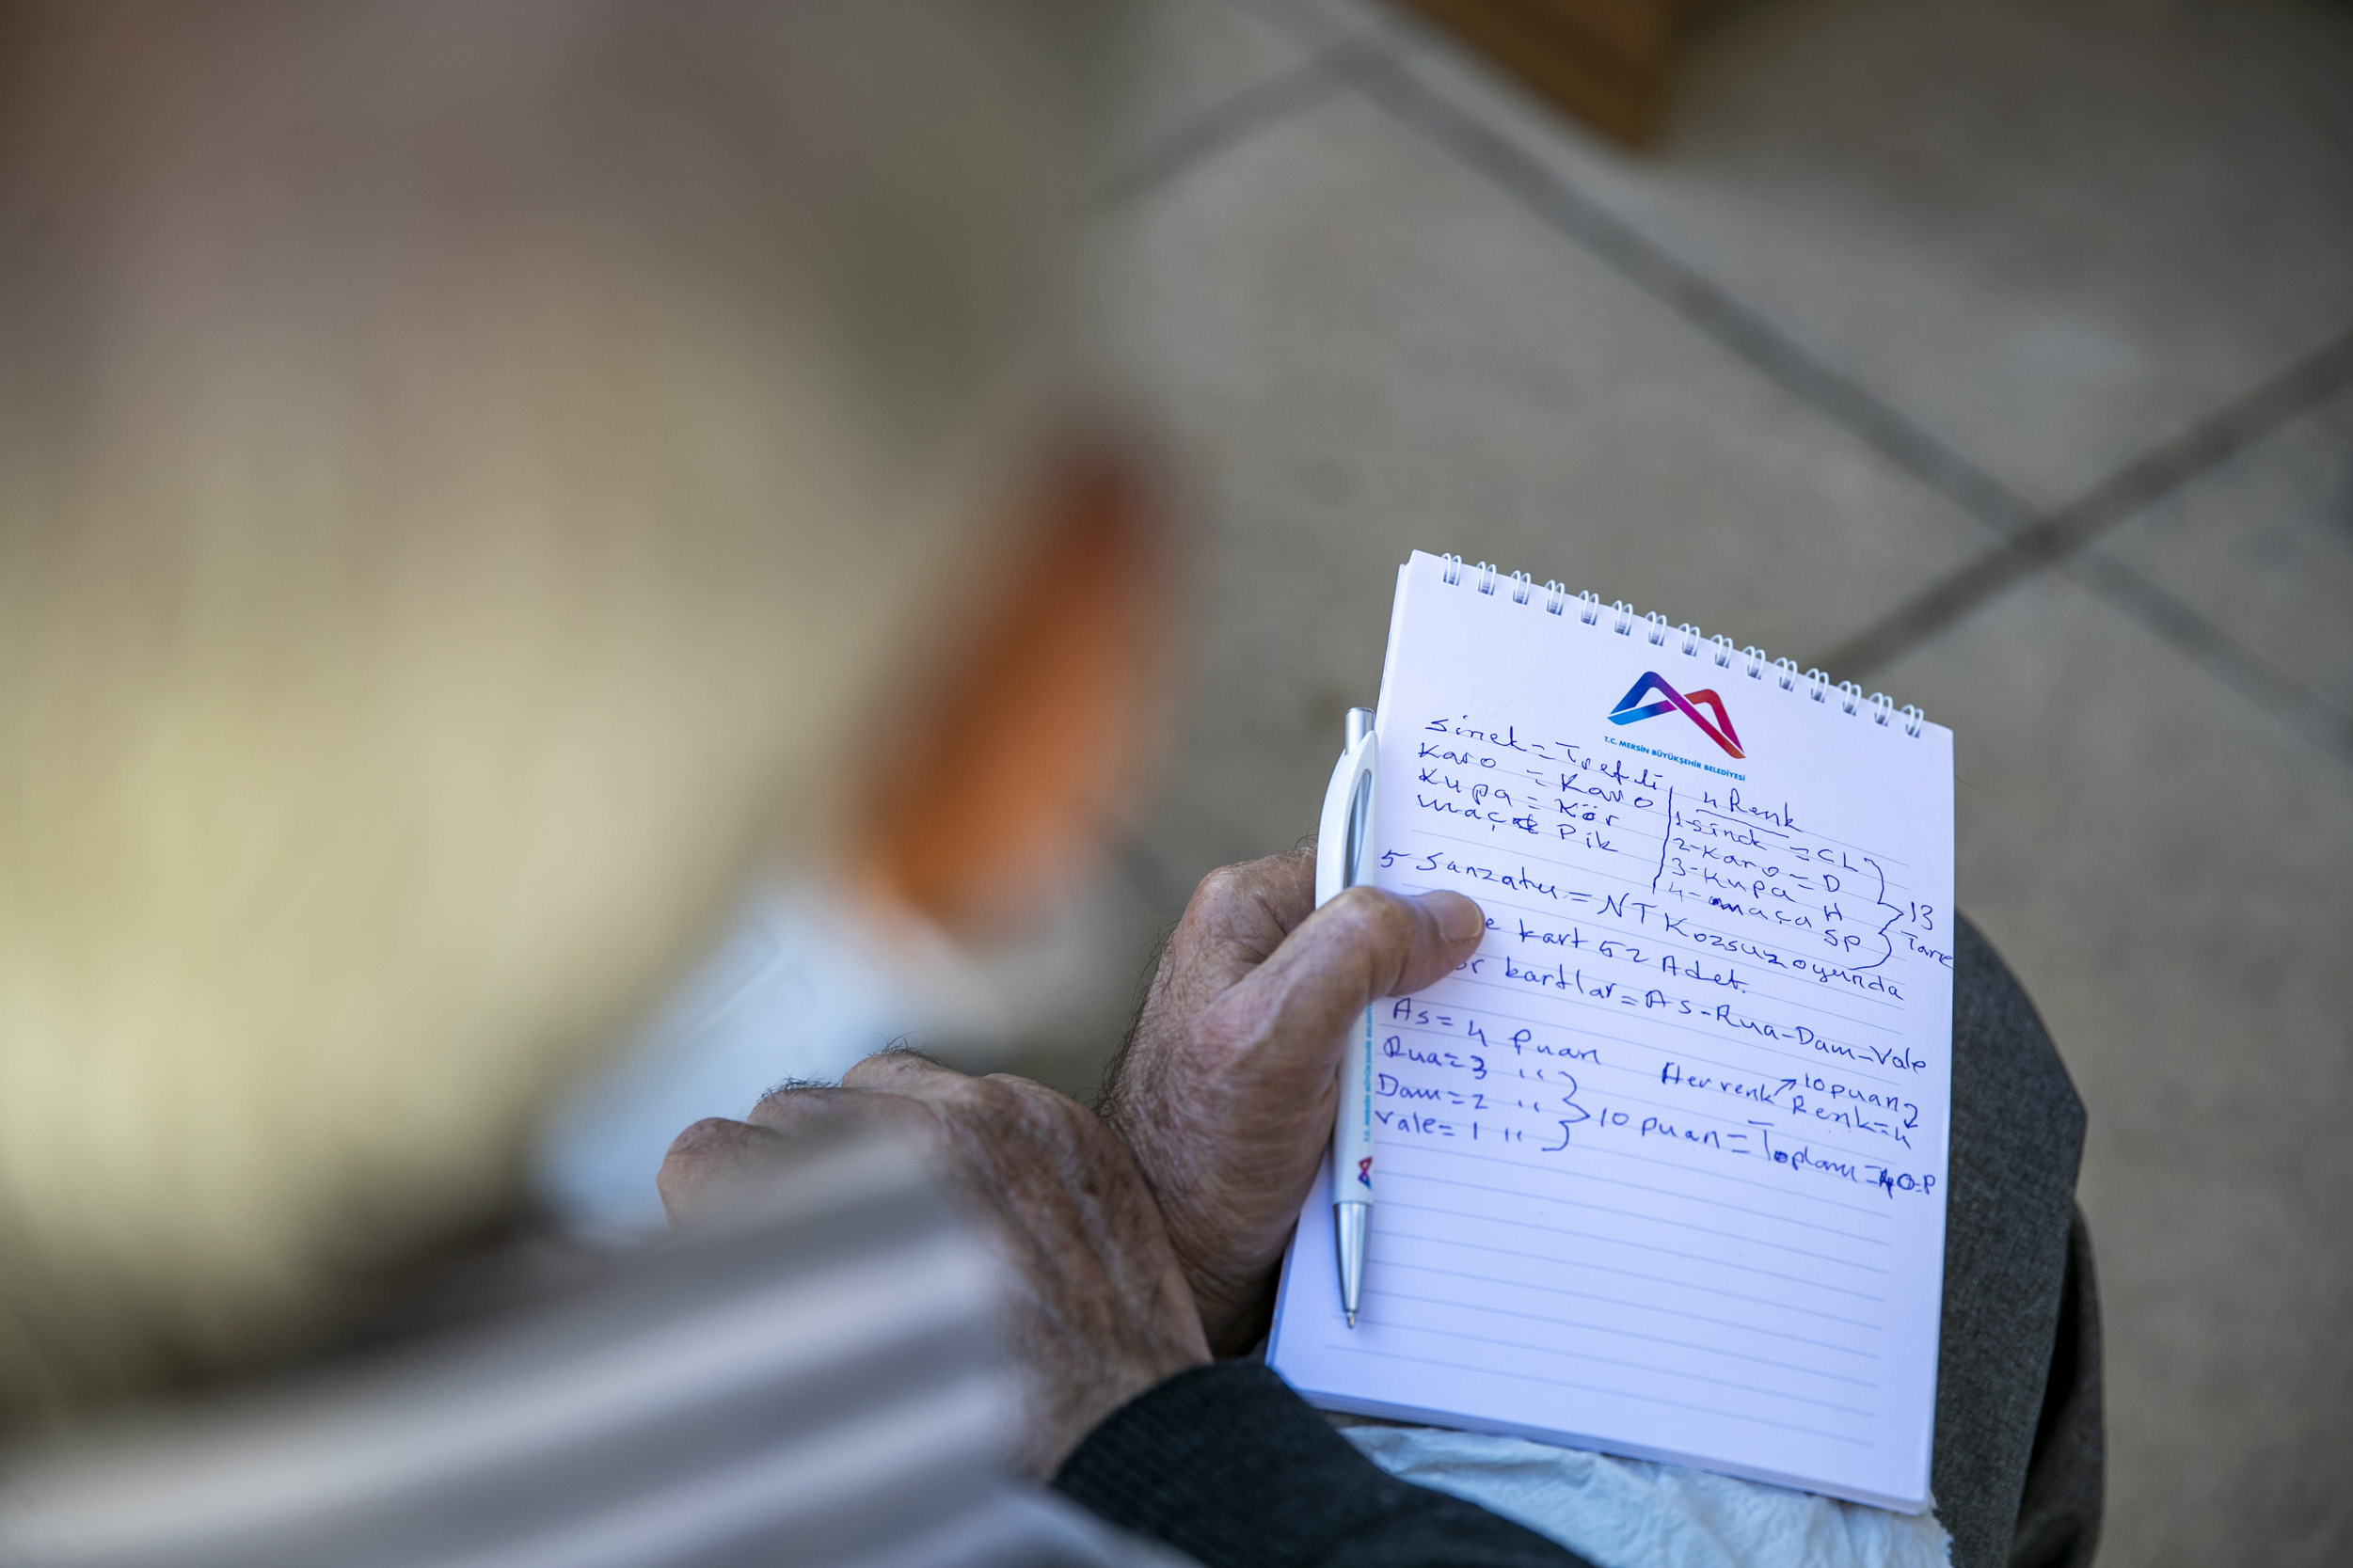 T.C. MERSİN BÜYÜKŞEHİR BELEDİYESİ
Sinek = Trefli
Karo = Karo
Kupa = Kör
maça Pik
4 Renk
1-Sinek = CL
2-Karo = D
3-Kupa H
4-maça SP
13
Tane
5 Sanzatu = NT Kozsuz oyunda
kart 52 Adet.
kartlar = As-Rua-Dam-Vale
As = 4 Puan
Rua = 3 "
Dam = 2 "
Vale = 1 "
Her renk 10 puan
Renk = 4
10 puan = Toplam = 40 P